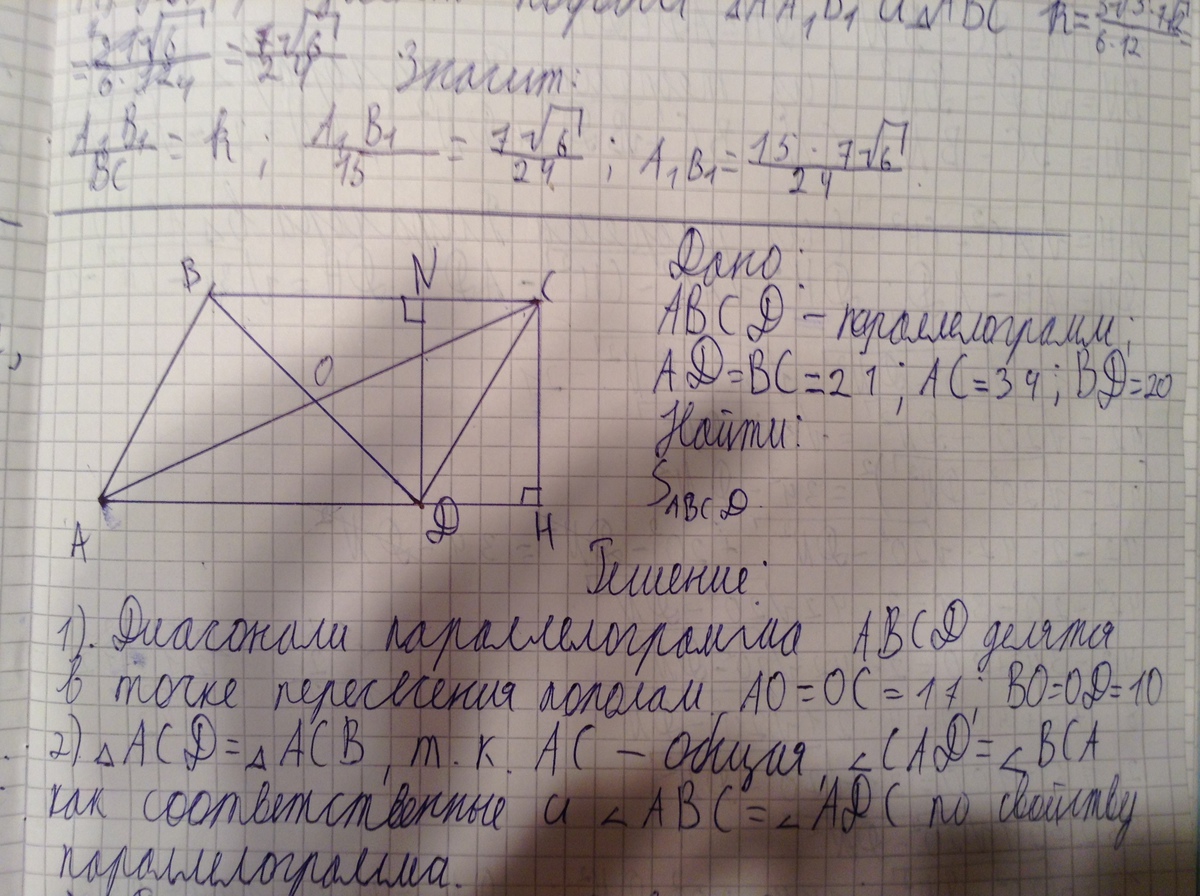 подобии △AA₁B₁ и △ABC k=
= 21√6 / 6·12 = 7√6 / 24 Значит:
A₁B₁ / BC = k ; A₁B₁ / 15 = 7√6 / 24 ; A₁B₁ = 15·7√6 / 24
B N C
O
A D H
Дано:
ABCD – параллелограмм;
AD=BC=21; AC=34; BD=20
Найти:
S ABCD
Решение:
1). Диагонали параллелограмма ABCD делятся
в точке пересечения пополам, AO=OC=17; BO=OD=10
2) △ACD=△ACB, т.к. AC – общая, ∠CAD=∠BCA
как соответственные и ∠ABC=∠ADC по свойству
параллелограмма.